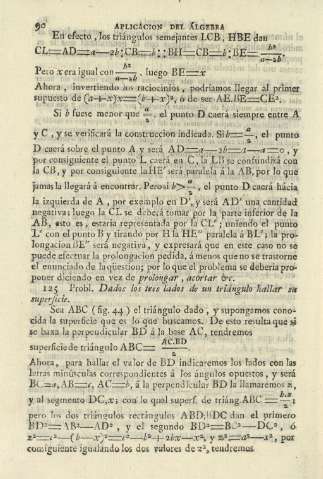 90 APLICACION DEL ÁLGEBRA
En efecto, los triángulos semejantes LCB, HBE dan
CL=AD=a-2b:CB=b::BH=CB=b:BE= b²/a-2b.
Pero x era igual con b²/a-2b, luego BE=x
Ahora, invirtiendo los raciocinios, podríamos llegar al primer
supuesto de (a+x)x=(b+x)², ó de ser AE.BE=CE².
Si b fuese menor que a/2, el punto D caerá siempre entre A
y C, y se verificará la construccion indicada. Si b= a/2, el punto
D caerá sobre el punto A y será AD=a-2b=a-a=0, y
por consiguiente el punto L caerá en C, la LB se confundirá con
la CB, y por consiguiente la HE' será paralela á la AB, por lo que
jamas la llegará á encontrar. Pero si b> a/2, el punto D caerá hácia
la izquierda de A, por exemplo en D', y será AD' una cantidad
negativa: luego la CL se deberá tomar por la parte inferior de la
AB, esto es, estaria representada por la CL'; uniendo el punto
L' con el punto B y tirando por H la HE'' paralela á BL'; la pro-
longacion BE'' será negativa, y expresará que en este caso no se
puede efectuar la prolongacion pedida, á menos que no se trastorne
el enunciado de la qüestion; por lo que el problema se deberia pro-
poner diciendo en vez de prolongar, acortar &c.
125 Probl. Dados los tres lados de un triángulo hallar su
superficie.
Sea ABC (fig. 44) el triángulo dado, y supongamos cono-
cida la superficie que es lo que buscamos. De esto resulta que si
se baxa la perpendicular BD á la base AC, tendremos
superficie de triángulo ABC= AC.BD/2
Ahora, para hallar el valor de BD indicaremos los lados con las
letras minúsculas correspondientes á los ángulos opuestos, y será
BC=a, AB=c, AC=b, á la perpendicular BD la llamaremos z,
y al segmento DC, x; con lo qual superf. de triáng. ABC= b.z/2;
pero los dos triángulos rectángulos ABD, BDC dan el primero
BD²=AB²-AD², y el segundo BD²=BC²-DC², ó
z²=c²-(b-x)²=c²-b²+2bx-x², y z²=a²-x², por
consiguiente igualando los dos valores de z², tendremos